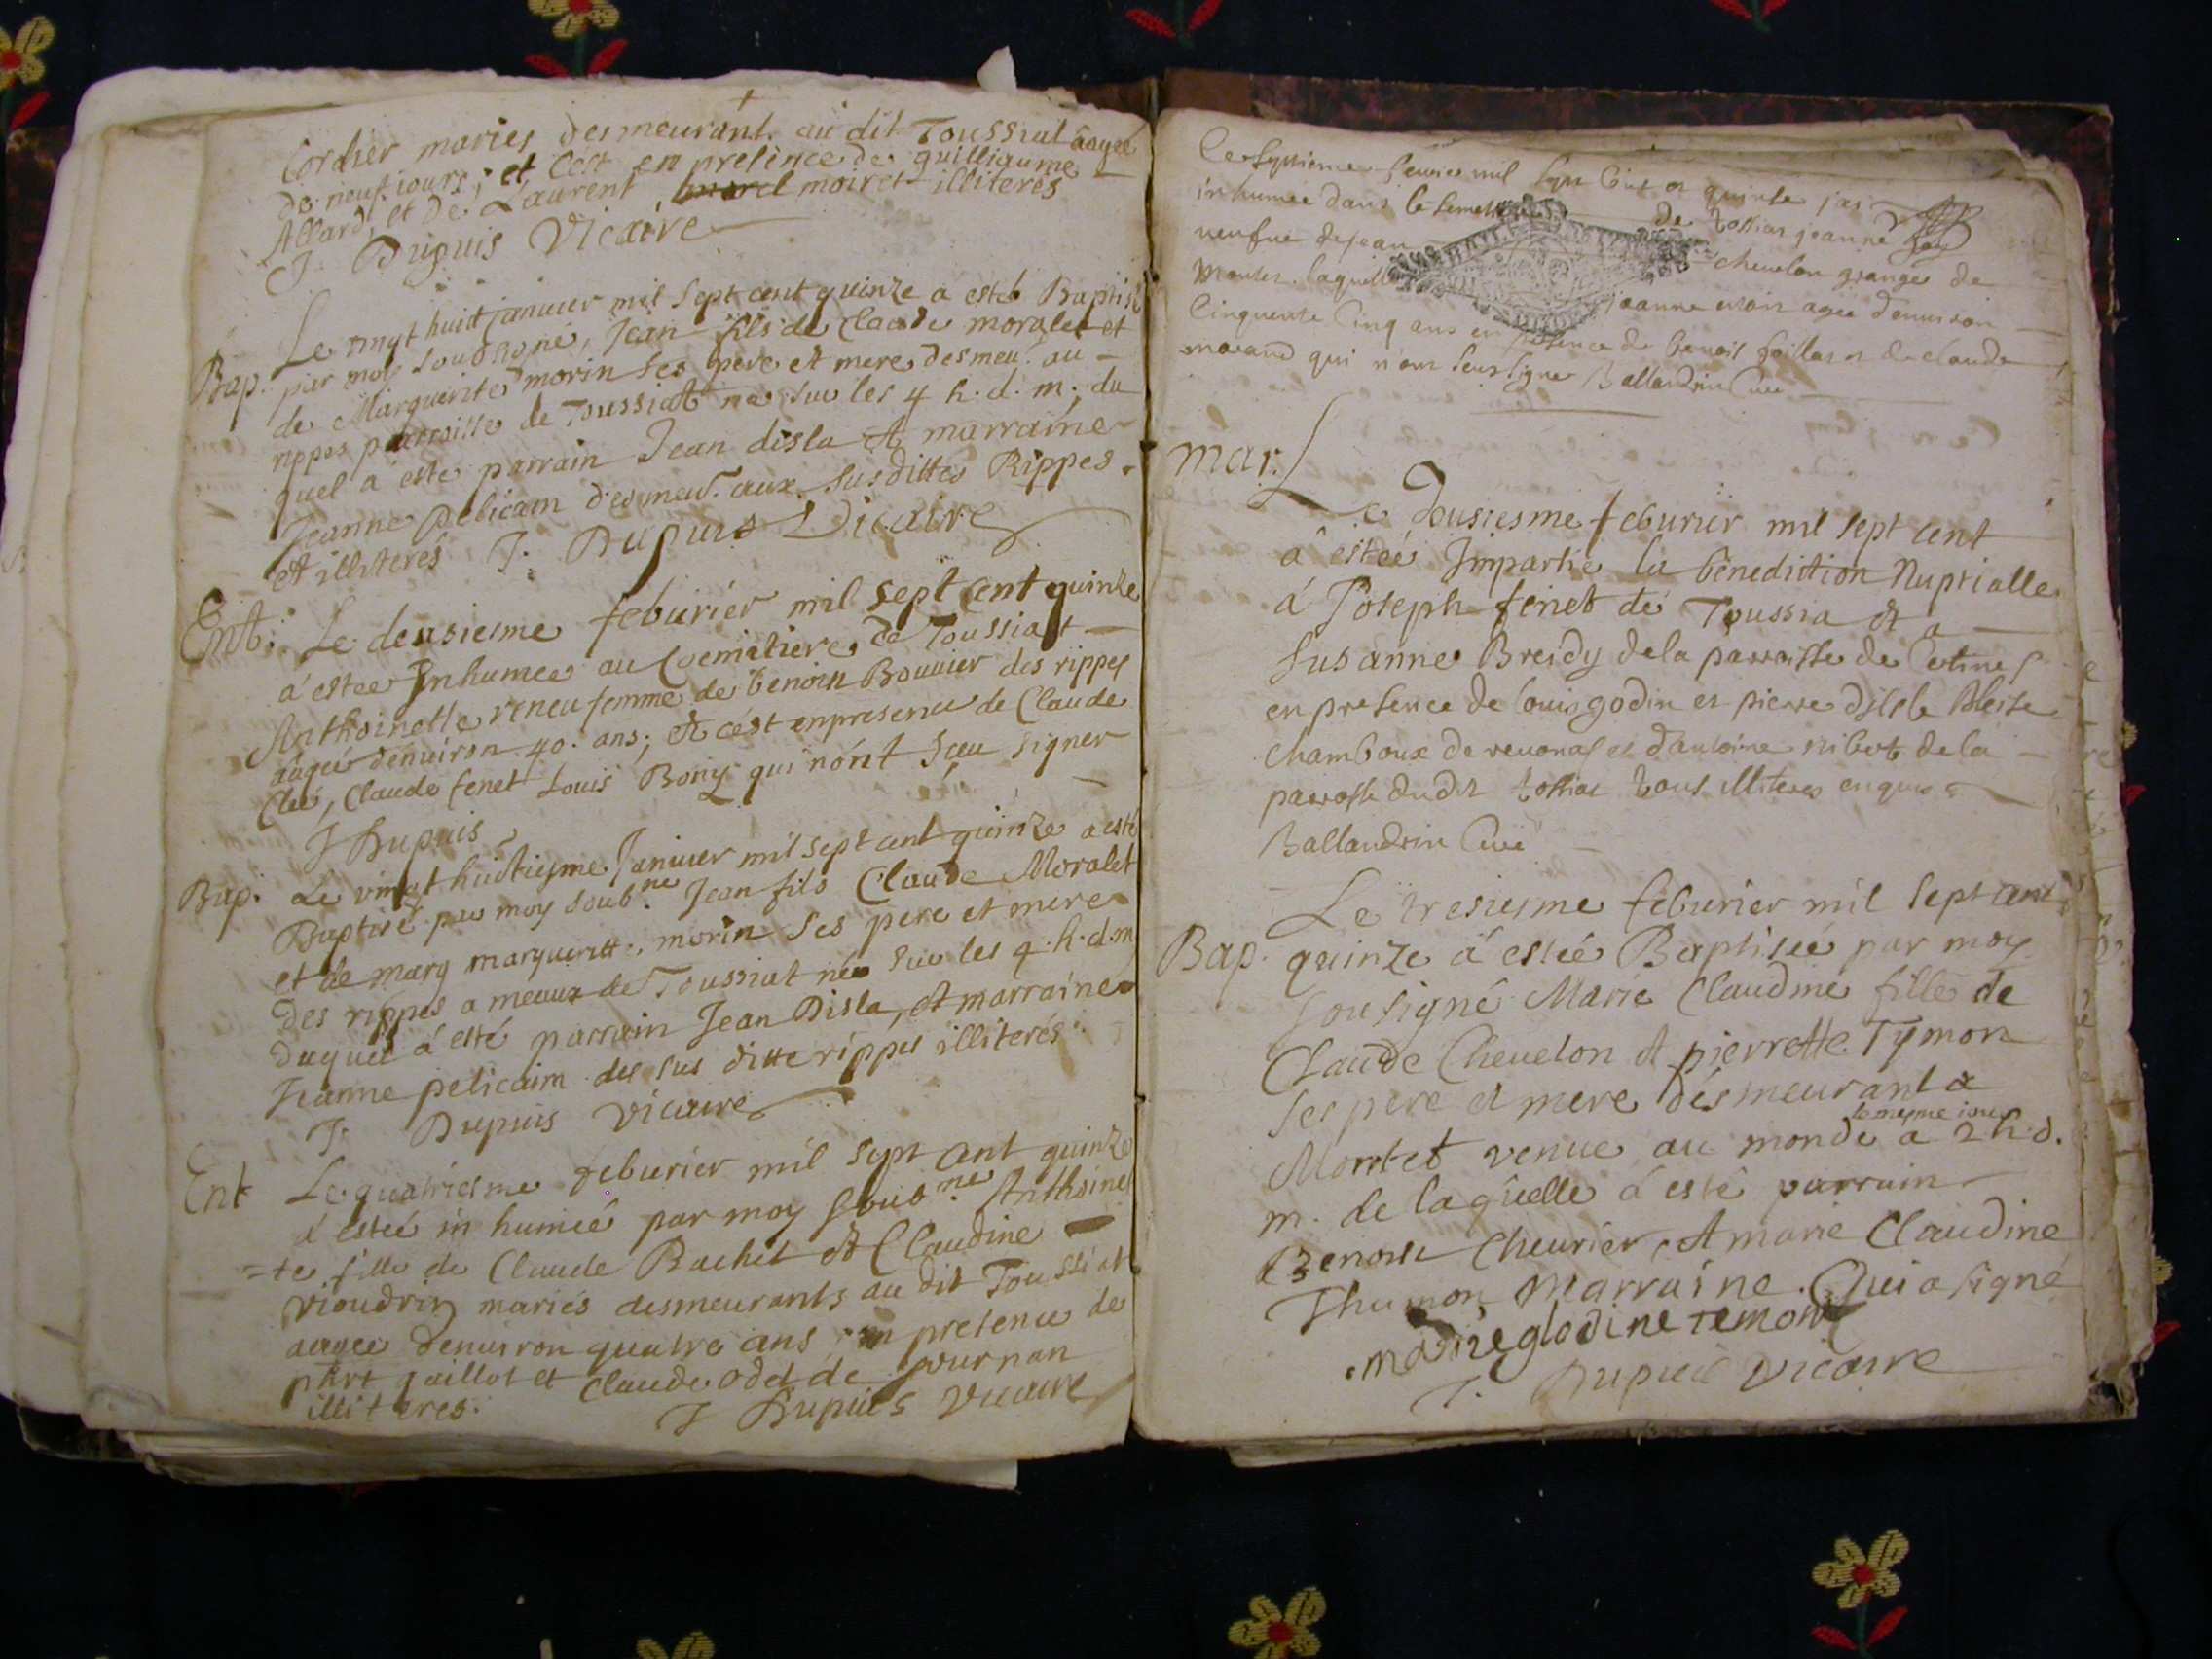 Cordier mariés desmeurant au dit Toussiat aagée
de neuf iours; et c'est en presence de guilliaume
Allard, et de Laurent moiret illiteres
J. Dupuis Vicaire
Le vingt huict januier mil sept cent quinze a esté Baptisé
Bap. par moy soubsigné, Jean fils de Claude moralet et
de Marguerite morin ses pere et mere desmeu. au
rippes parroisse de Toussiat né sur les 4 h. d. m. du
quel a esté parrain Jean disla et marraine
Jeanne Pelicam desmeu. aux susdittes Rippes.
et illiterés J. Dupuis Vicaire
Ent: Le deusiesme feburier mil sept cent quinze
a estée Inhumee au Coemetiere de Toussiat
Anthoinette reneu femme de benoist Bouuier des rippes
aagée denuiron 40. ans; et c'est en presence de Claude
Clee, Claude fenet Louis Bony qui n'ónt sceu signer
J Dupuis
Bap. Le vingt huitiesme Januier mil sept cent quinze a esté
Baptisé par moy soub.né Jean fils Claude Moralet
et de marg margueritt. morin ses pere et mere
des rippes a meaux de Toussiat née sur les 4. h. d. m
duquel á esté parrain Jean Disla, et marraine
Jeanne pelicaim des sus ditte rippes illiterés
J. Dupuis vicaire
Ent Le quatriesme feburier mil sept cent quinze
á estée in humée par moy soub.né Anthoine
=te fille de Claude Bachet et Claudine
vioudrin mariés desmeurants au dit Toussiat
aagée denuiron quatre ans, en presence de
gaillot et Claude Odet de journan
illiteres. J Dupuis Vicaire
Le septieme feurier mil sept Cent et quinse
inhumée dans le de tossiat jeanne
veufue de jean cheuelon granger de
laquelle jeanne agée denuiron
Cinquente Cinq ans en presence de benoit gaillot et de claude
morand qui n'ont seu signer Ballandrin Curé
mar. Le Dousiesme feburier mil sept cent
â estée Impartie la benediction Nuptialle
á Joseph fenet de Toussia et a
Susanne Breidy de la parroisse de
en presence de louis godin et pierre
chamboux de reuonas et d'antoine ribot de la
parrosse dudit tossiat tous illiteres enquis
Ballandrin Curé
Le tresiesme feburier mil sept cent
Bap. quinze á estée Baptisée par moy
sousigné Marie Claudine fille de
Claude Cheuelon et pierrette Tymon
ses pere et mere désmeurant a
le mesme iour
Montet venue au monde a 2 h. d.
m. de laquelle á esté parrain
Benoist Cheurier, et marie Claudine
Thumon Marraine. Qui a signé
marieglodine temon
J. Dupuis Vicaire